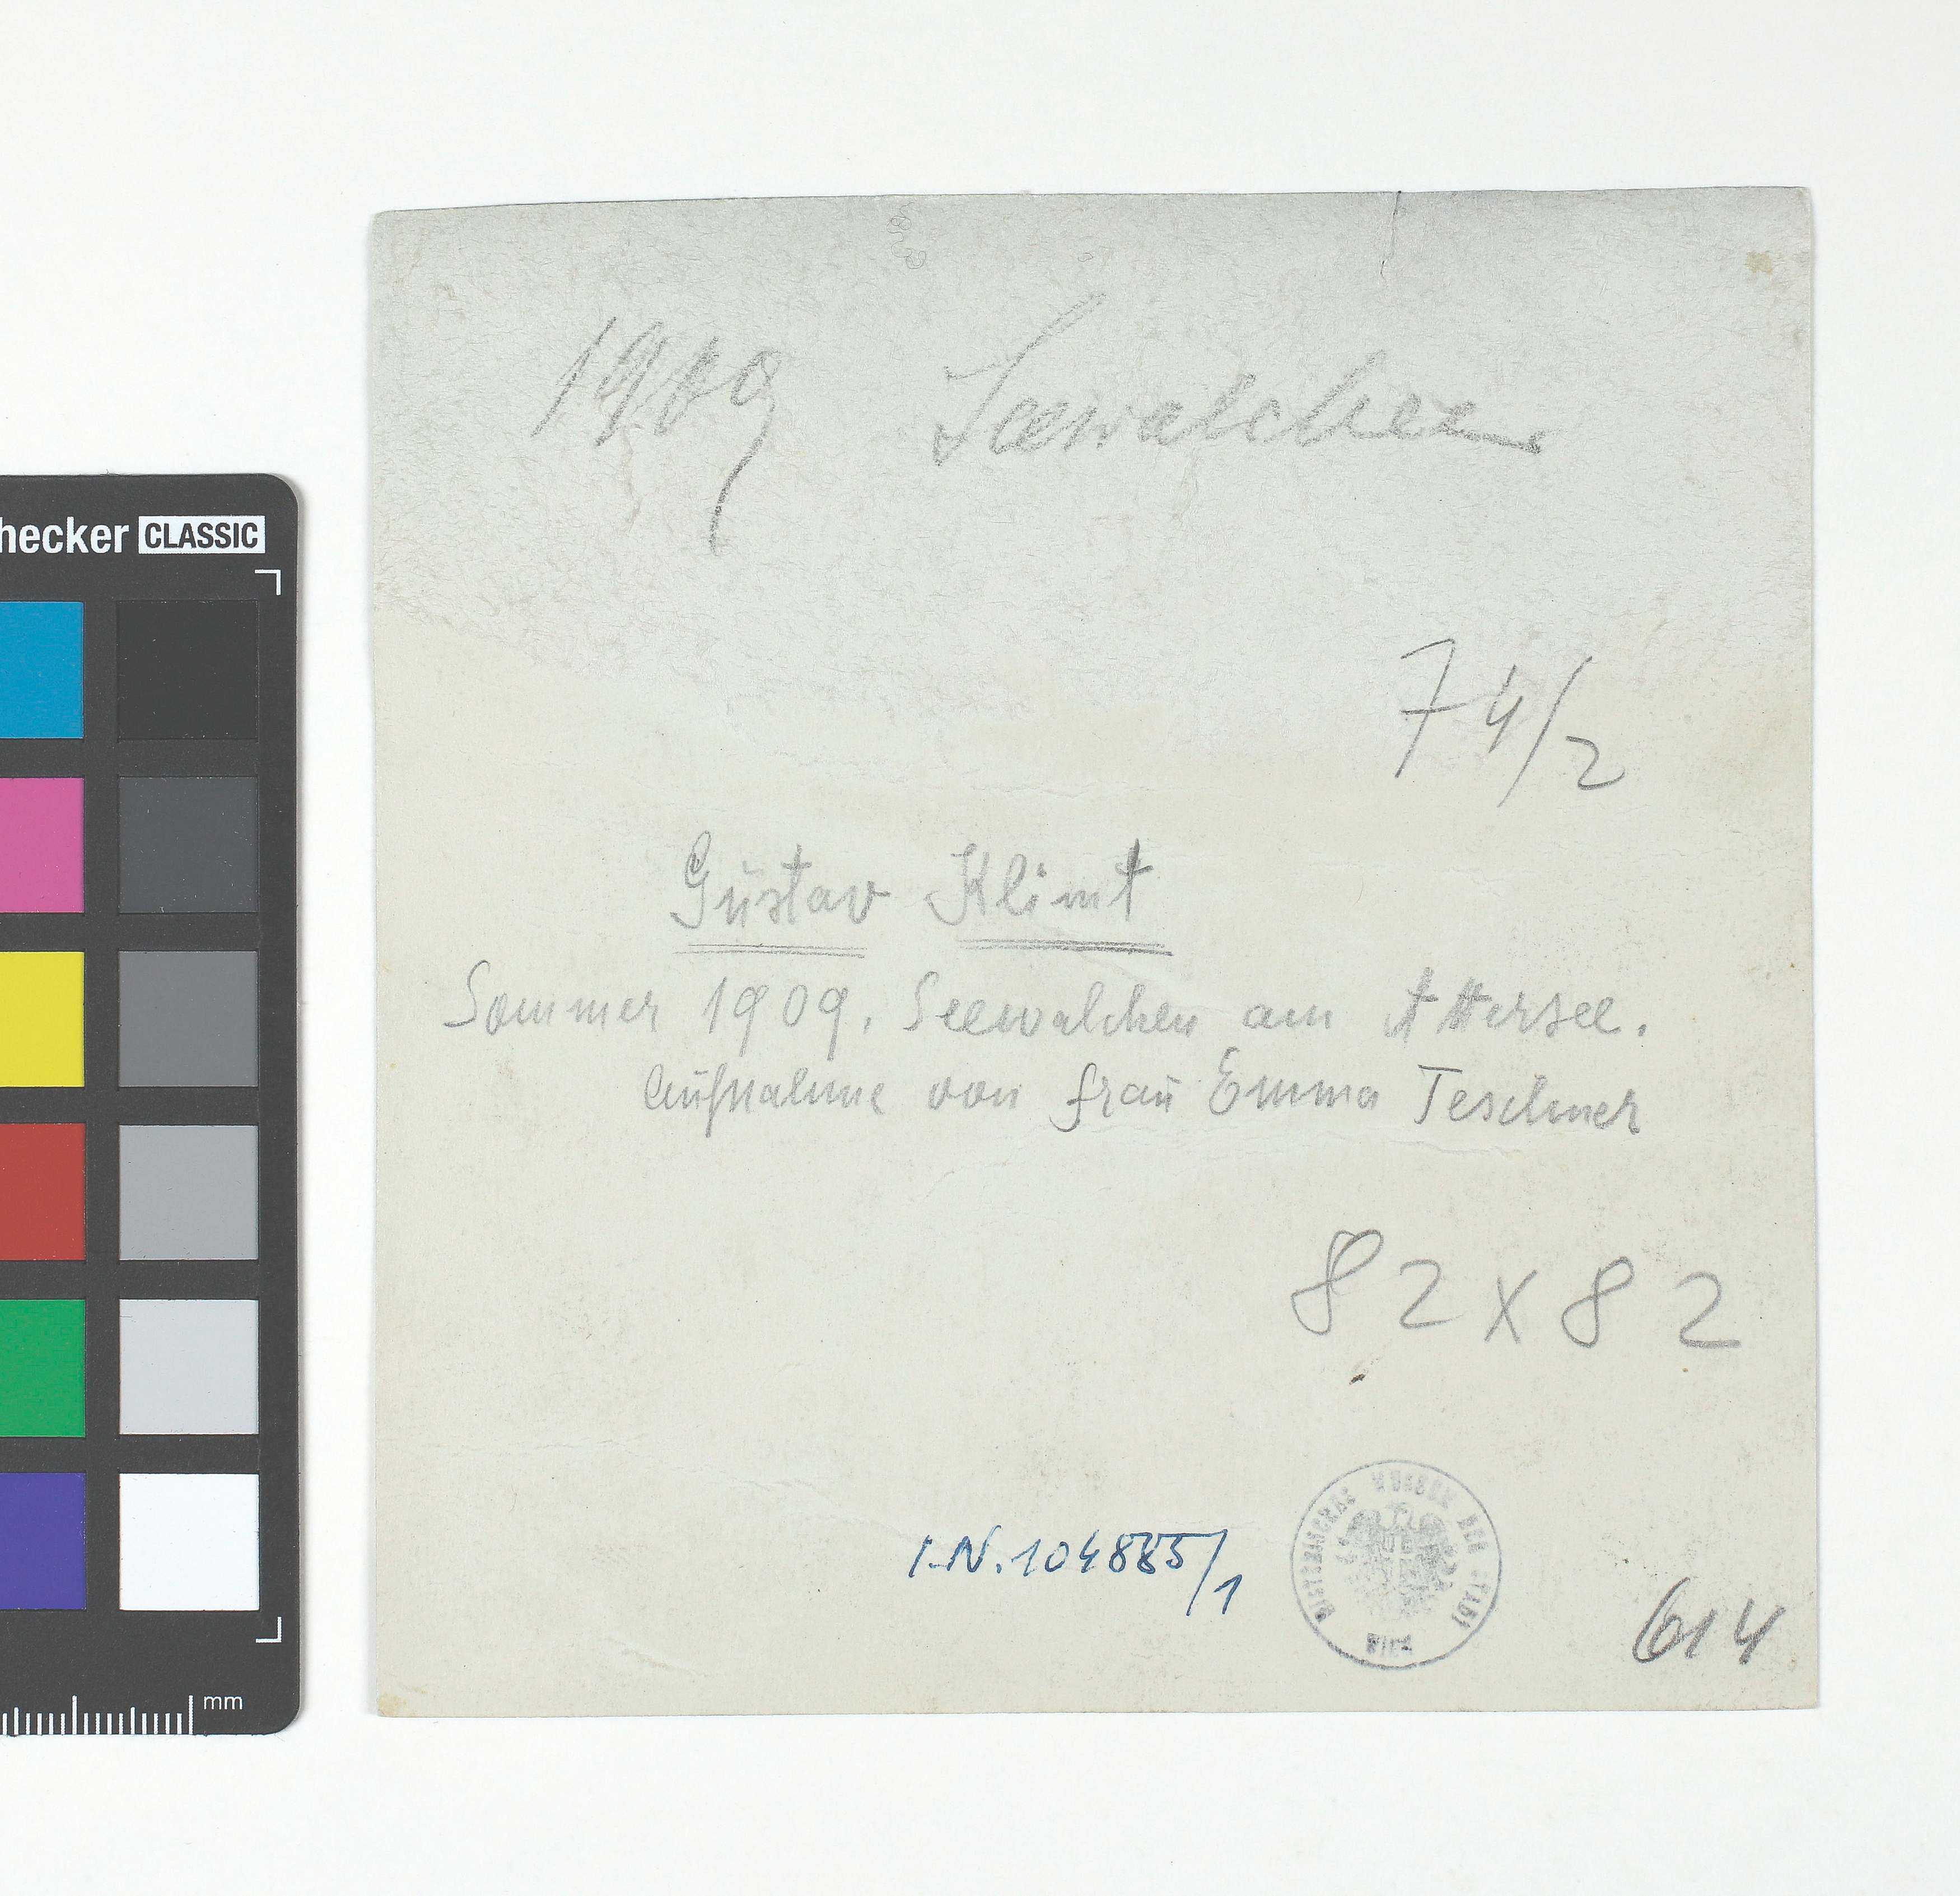 1909 Seewalchen
74/2
Gustav Klimt
Sommer 1909. Seewalchen am Attersee.
Aufnahme von Frau Emma Teschner
82 x 82
I.N. 104885/1
HISTORISCHES MUSEUM DER STADT WIEN
614
hecker CLASSIC
mm